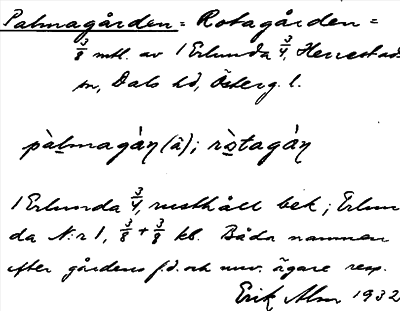 Palmagården = Rotagården =
3/8 mtl. av 1 Erlunda 3/4, Herrestads
sn, Dals hd, Österg. l.
pàlmagàn (â); ròtagàn
1 Erlunda 3/4, rusthåll bek; Erlun
da N:r 1, 3/8 + 3/8 kb. Båda namnen
efter gårdens f.d. och nuv. ägare resp.
Erik Alm 1932